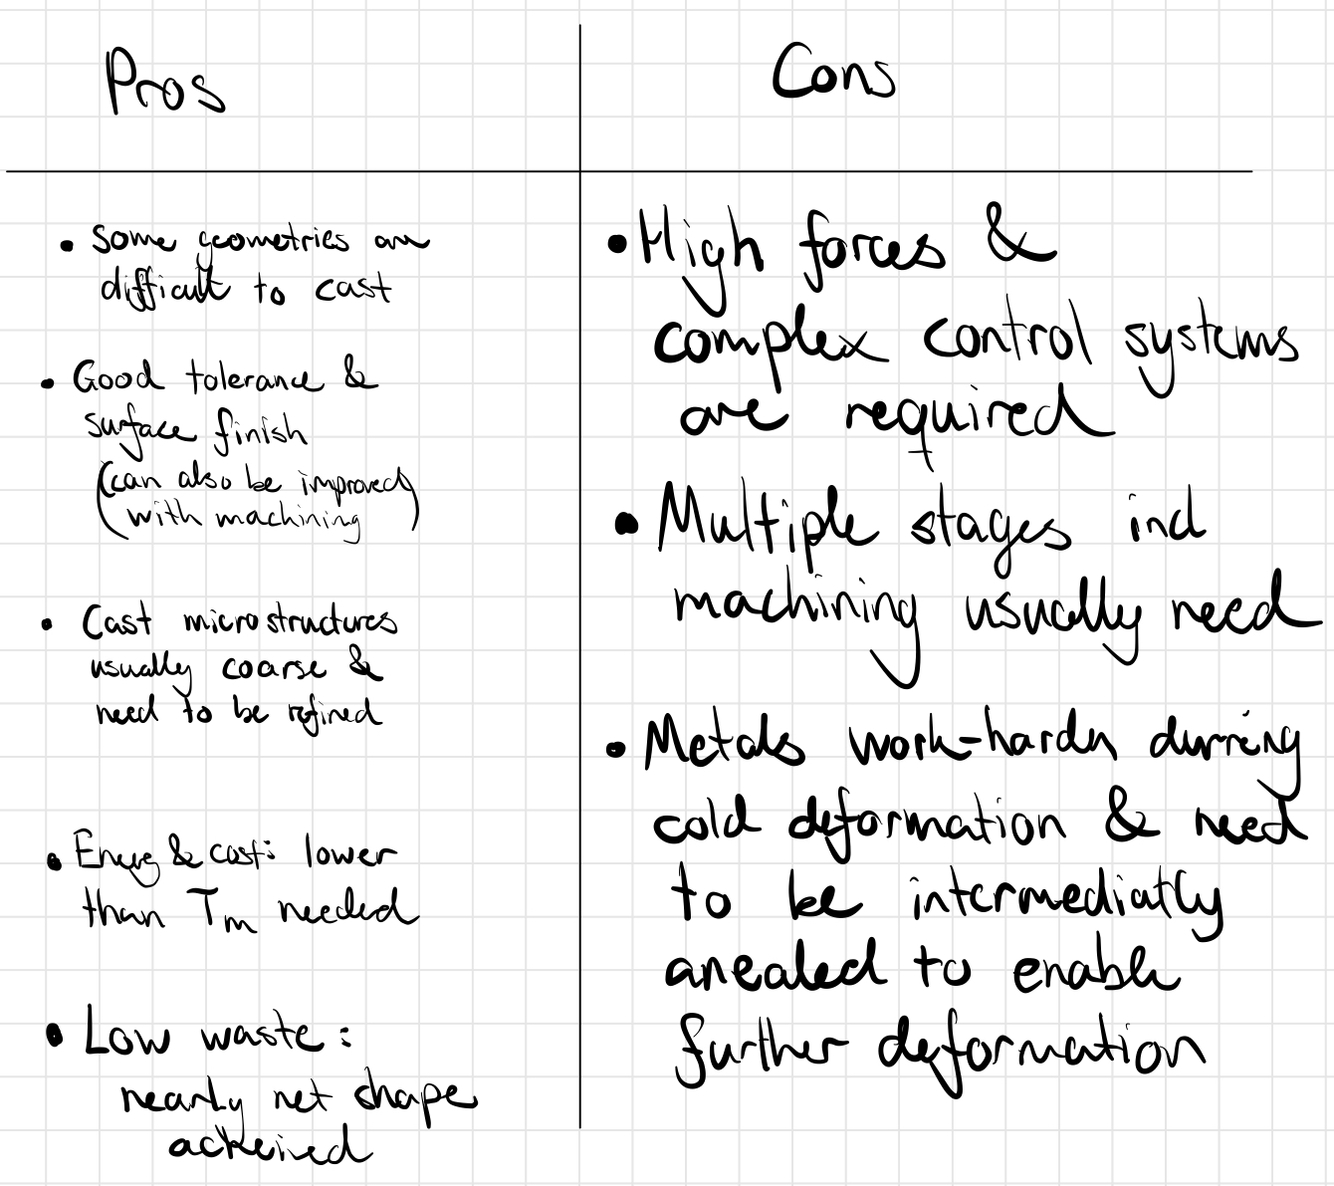 Pros
Cons
• Some geometries are
difficult to cast
• Good tolerance &
surface finish
(can also be improved
with machining)
• Cast microstructures
usually coarse &
need to be refined
• Energy & cost: lower
than Tm needed
• Low waste:
nearly net shape
acheived
• High forces &
complex control systems
are required
• Multiple stages incl
machining usually need
• Metals work-harden durring
cold deformation & need
to be intermediatly
anealed to enable
further deformation